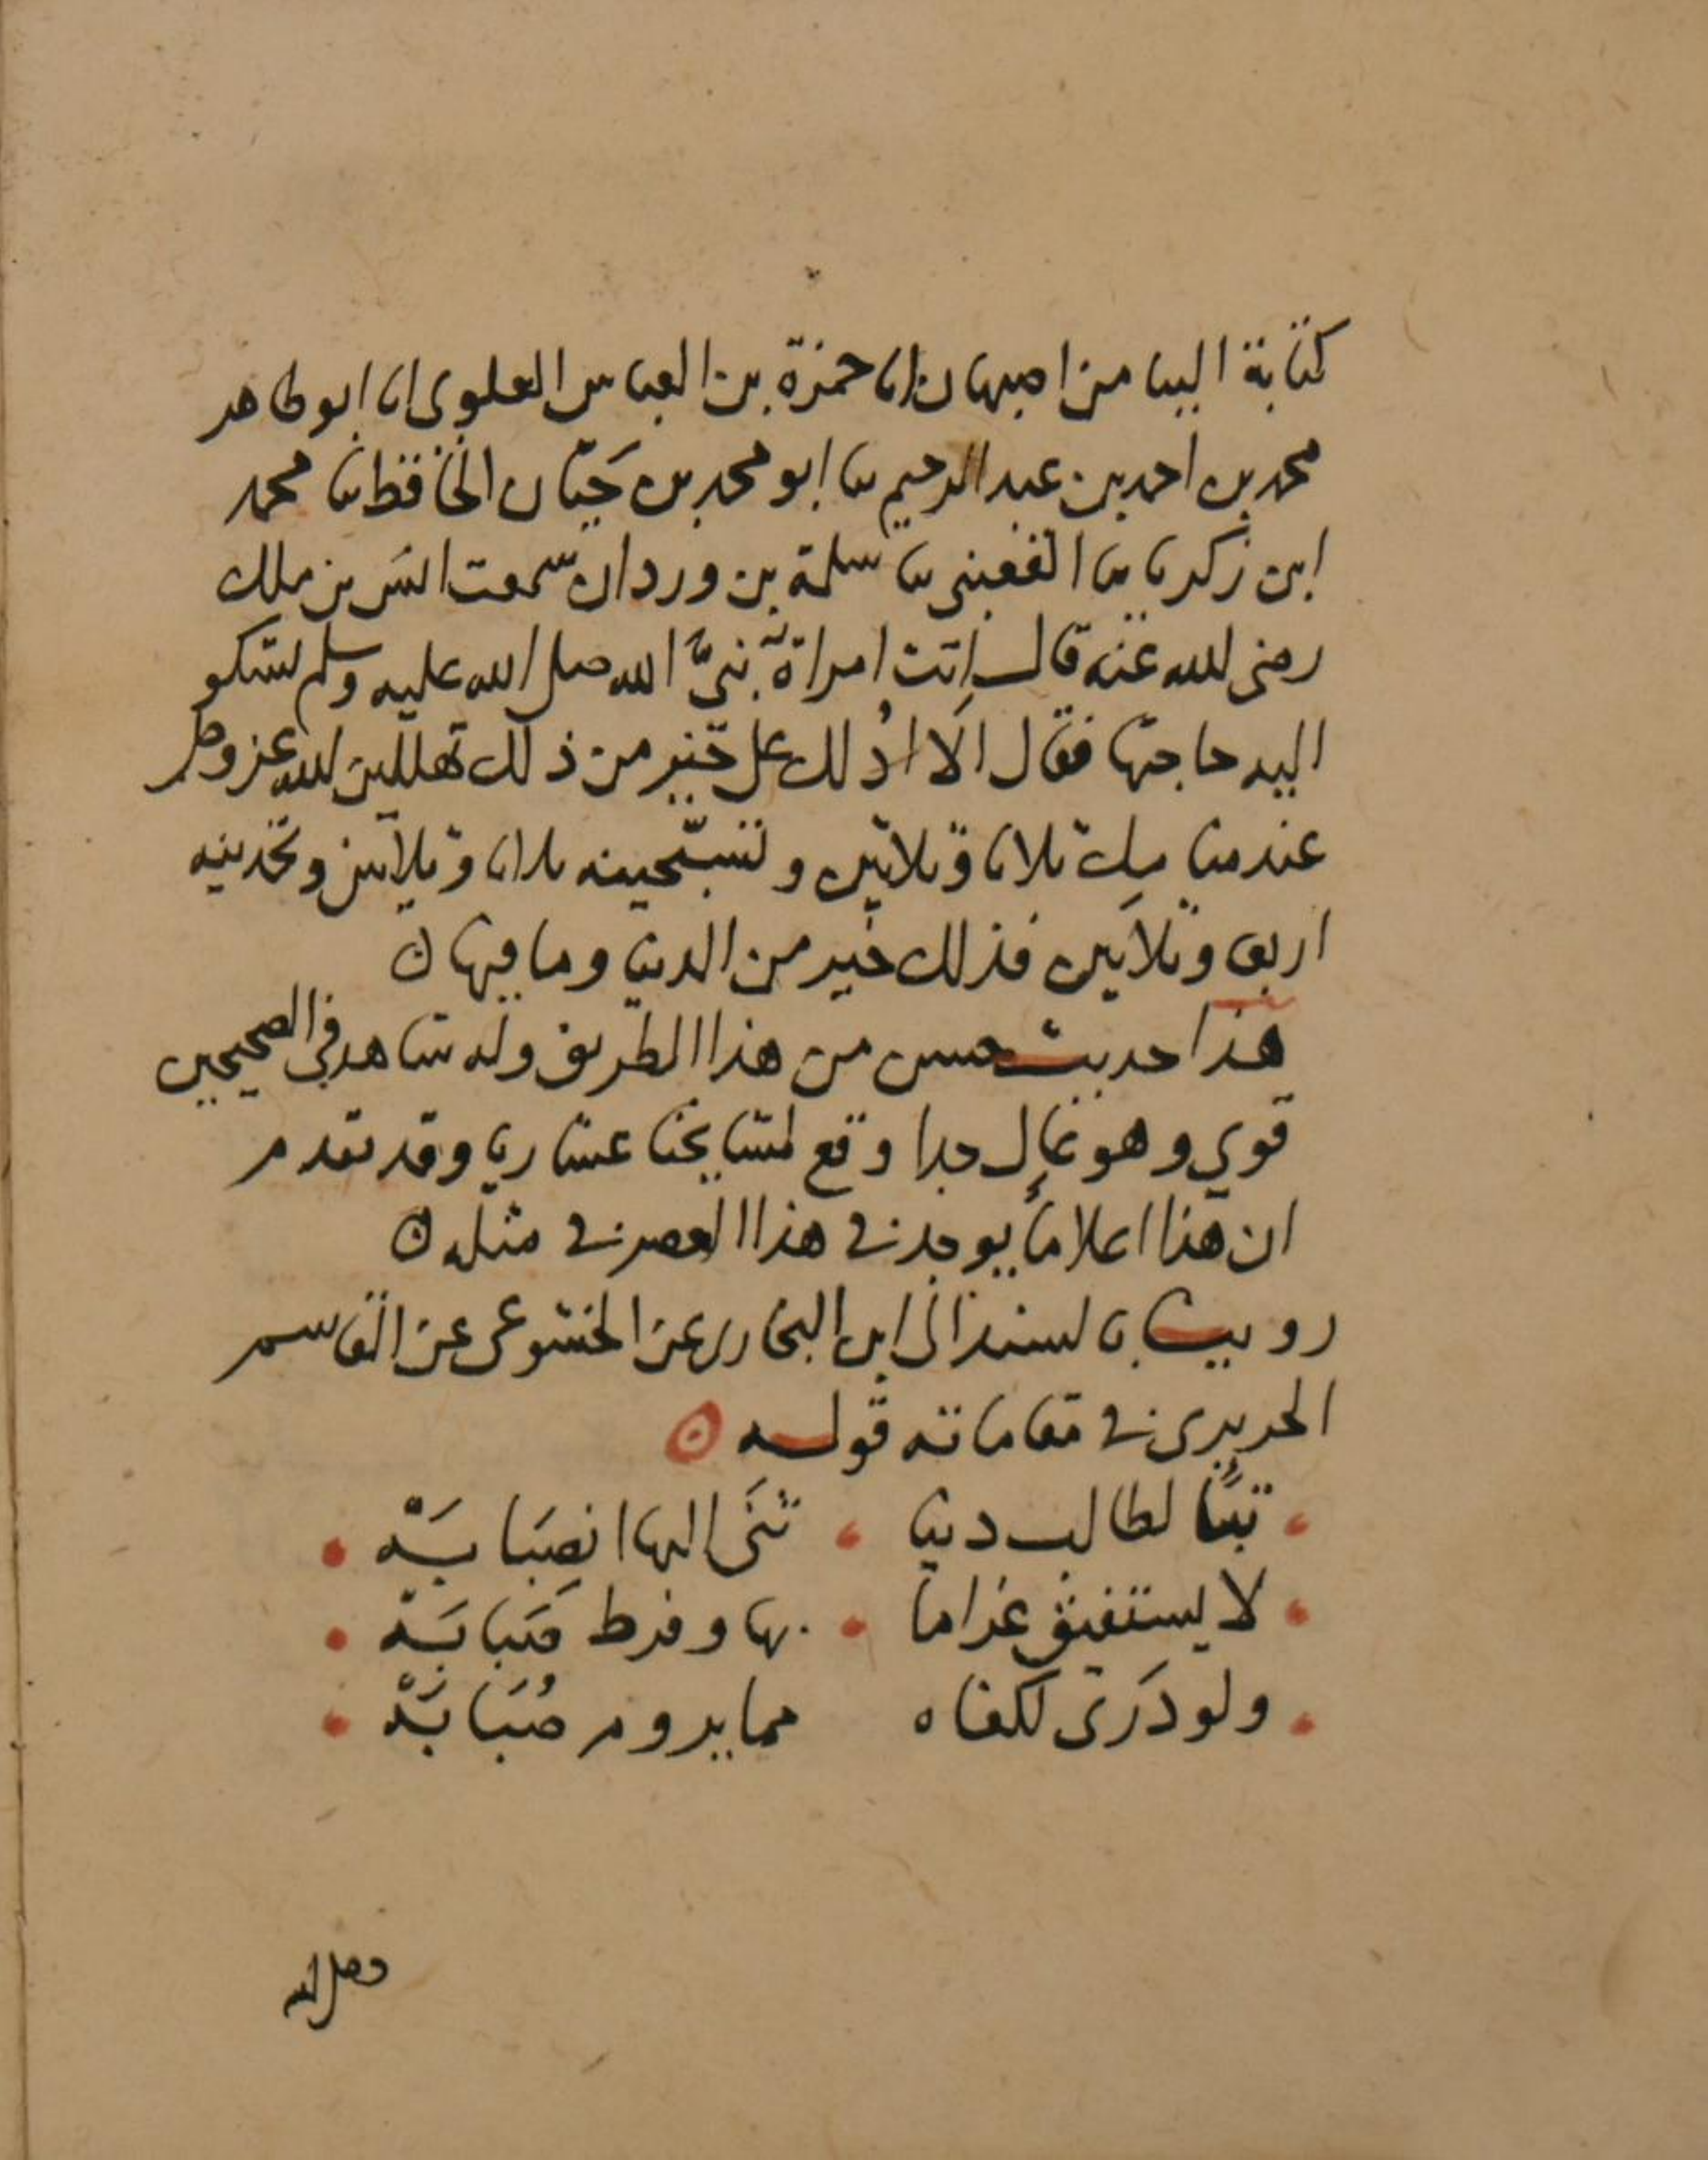 كتابة الينا من اصبهان انا حمزة بن العباس العلوى انا ابو طاهر
محمد بن احمد بن عبد الرحيم ثنا ابو محمد بن حَيّان الحافظ ثنا محمد
ابن زكريا ثنا القعنبى ثنا سلمة بن وردان سمعت انس بن ملك
رضى الله عنه قال اتت امراة نبىَّ الله صلى الله عليه وسلم تشكو
اليه حاجتها فقال الا ادُلك على خير من ذلك تهللين الله عز وجل
عند منامك ثلاثا وثلاثين وتسبّحينه ثلاثا وثلاثين وتحمدينه
اربعا وثلاثين فذلك خير من الدنيا وما فيها ن
هذا حديث حسن من هذا الطريق وله شاهد فى الصحيحين
قوي وهو عالٍ جدا وقع لمشايخنا عشاريا وقد تقدم
ان هذا اعلا ما يوجد فى هذا العصر فى مثله ن
رويت بالسند الى ابن البخارى عن الخشوعى عن القاسم
الحريرى فى مقاماته قوله ن
تبًّا لطالب دنيا . ثَنَى اليها انصِبَابَهْ .
لا يستفيق غراما . بها وفرط صَبَابَهْ .
ولو دَرَى لكفاه مما يروم صُبَابَهْ .
وصلى الله